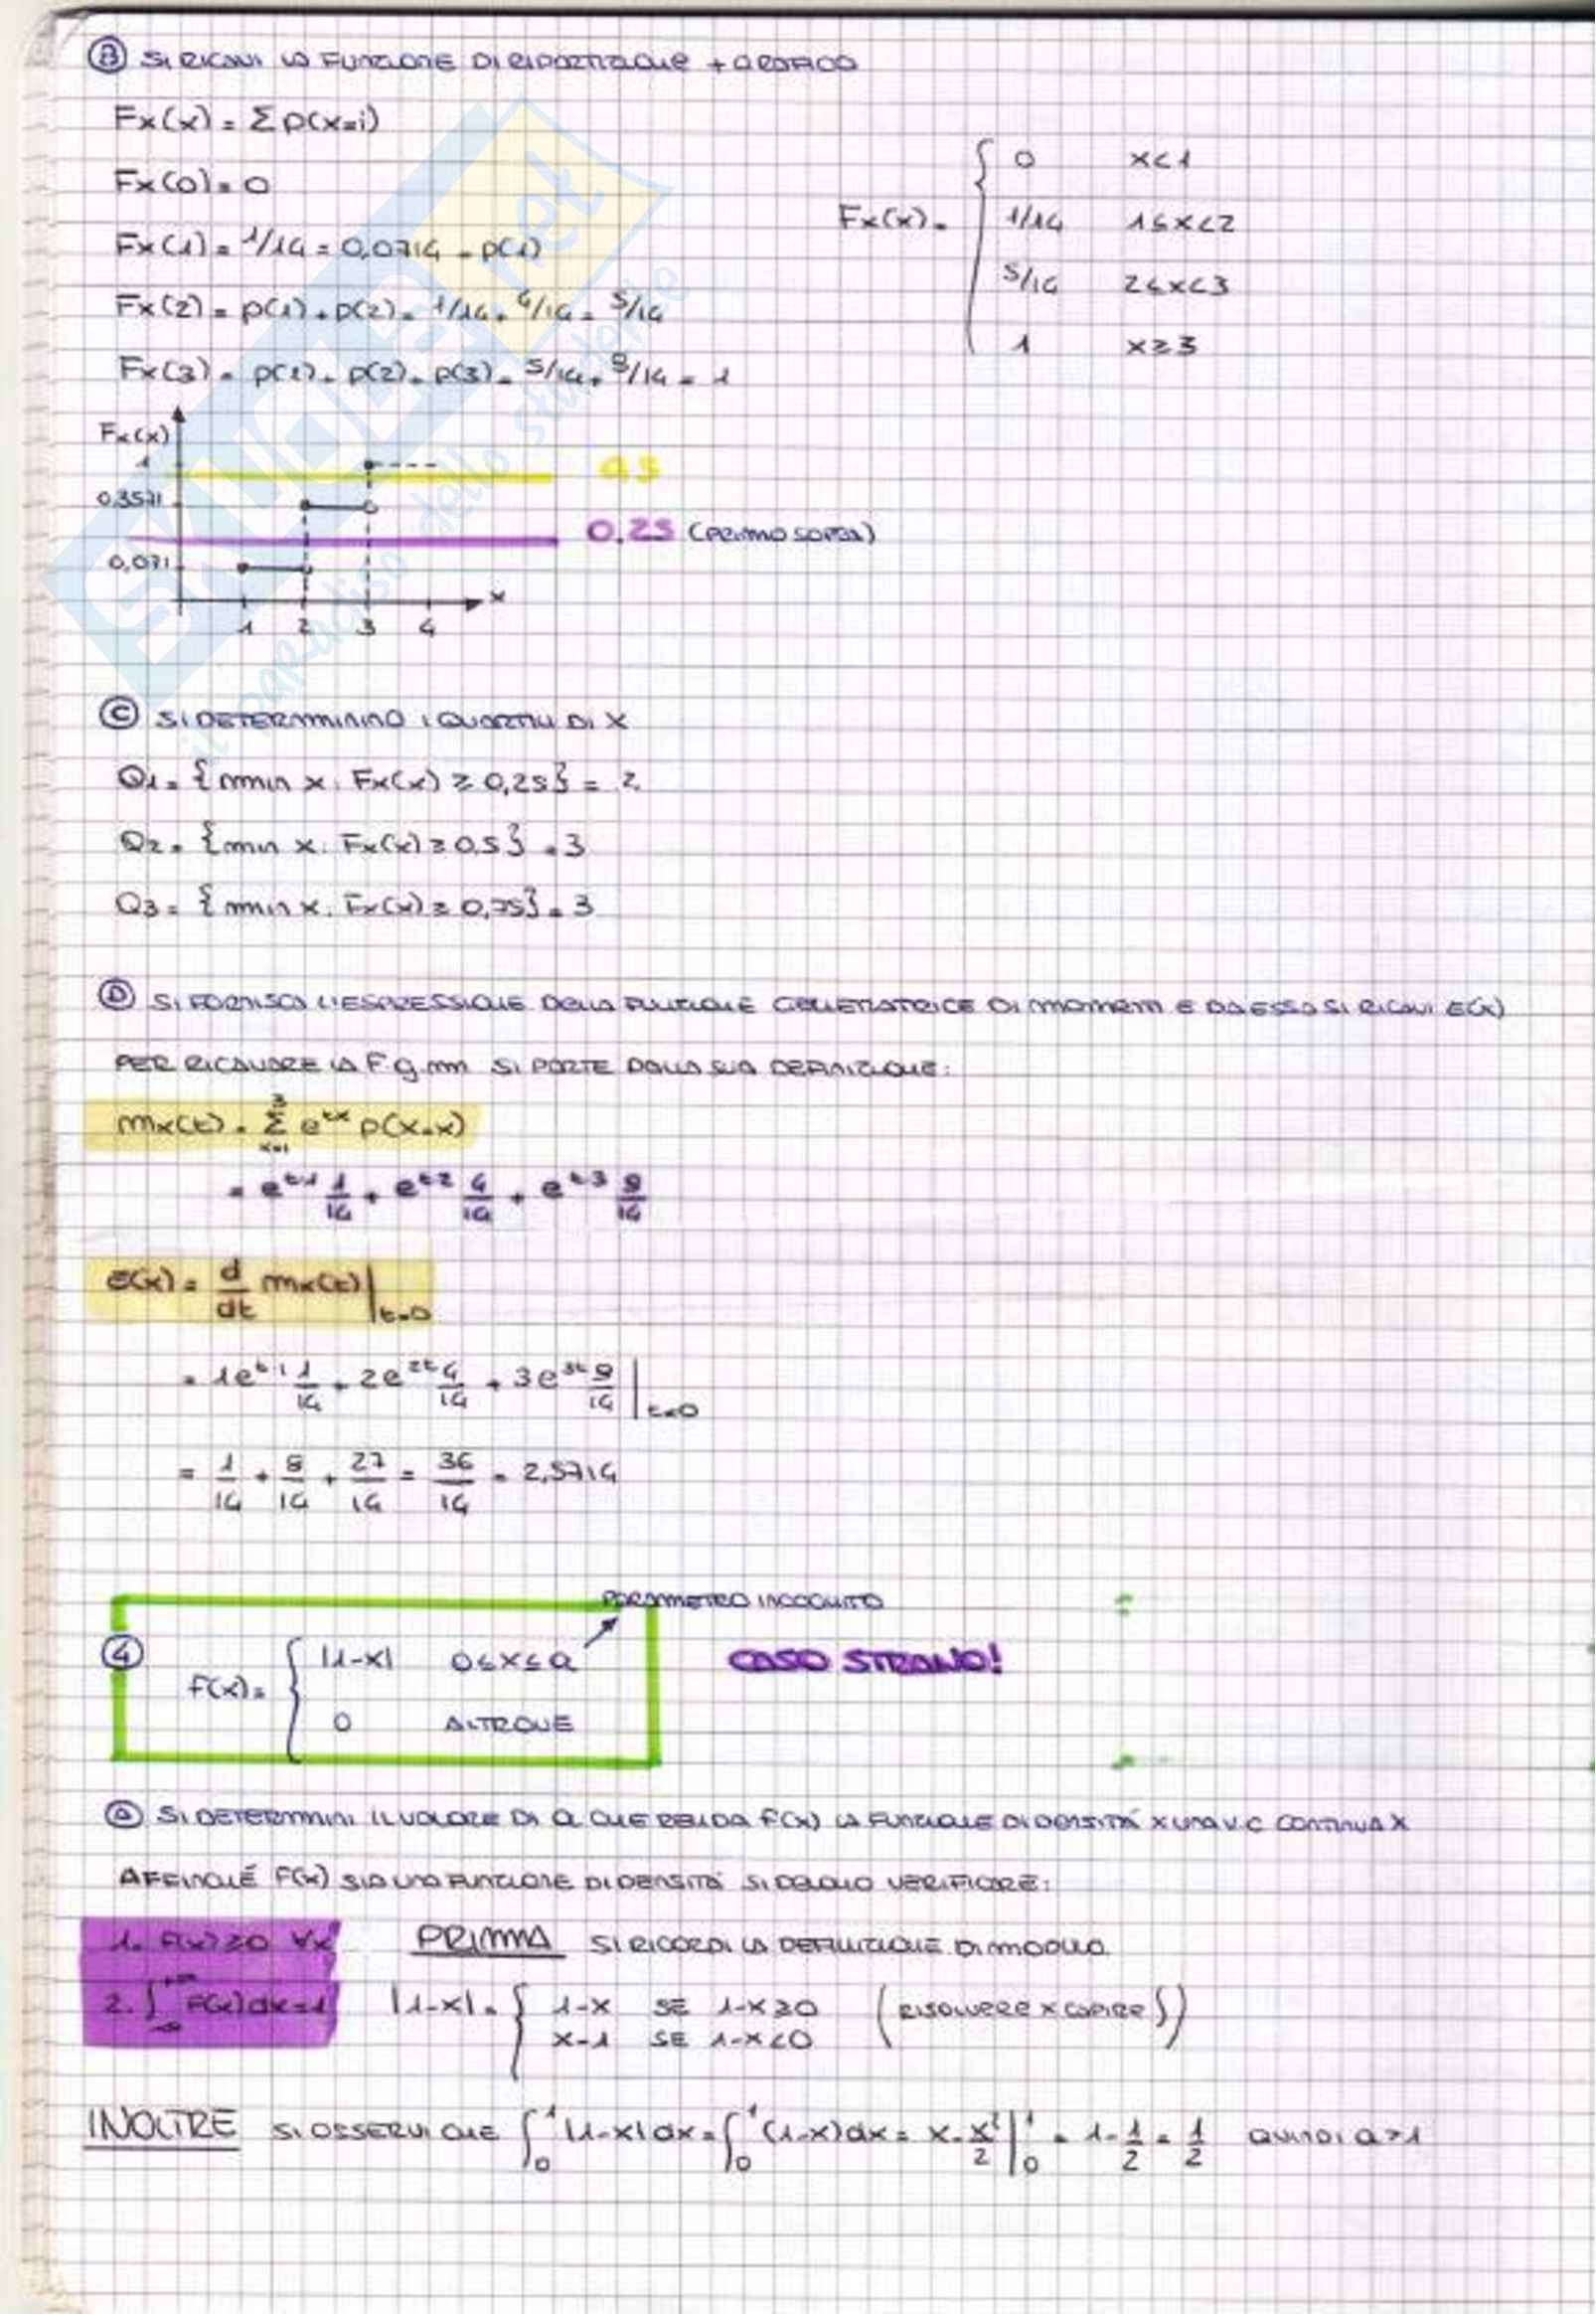 B SI RICAVI LA FUNZIONE DI RIPARTIZIONE + GRAFICO
Fx(x) = Σ p(x=i)
Fx(0) = 0
Fx(1) = 1/14 = 0,0714 = p(1)
Fx(2) = p(1) + p(2) = 1/14 + 4/14 = 5/14
Fx(3) = p(1) + p(2) + p(3) = 5/14 + 9/14 = 1
Fx(x) = { 0 x<1
1/14 1≤x<2
5/14 2≤x<3
1 x≥3
Fx(x)
1
0,3571
0,071
1 2 3 4 x
0,5
0,25 (PRIMO SOPRA)
C SI DETERMININO I QUARTILI DI X
Q1 = {min x: Fx(x) ≥ 0,25} = 2
Q2 = {min x: Fx(x) ≥ 0,5} = 3
Q3 = {min x: Fx(x) ≥ 0,75} = 3
D SI FORNISCA L'ESPRESSIONE DELLA FUNZIONE GENERATRICE DI MOMENTI E DA ESSA SI RICAVI E(X)
PER RICAVARE LA F.g.m SI PARTE DALLA SUA DEFINIZIONE:
mx(t) = Σ_{x=1}^{3} e^{tx} p(X=x)
= e^{t·1} 1/14 + e^{t·2} 4/14 + e^{t·3} 9/14
E(x) = d/dt mx(t) |_{t=0}
= 1e^{t·1} 1/14 + 2e^{2t} 4/14 + 3e^{3t} 9/14 |_{t=0}
= 1/14 + 8/14 + 27/14 = 36/14 = 2,5714
PARAMETRO INCOGNITO
4 f(x) = { |1-x| 0≤x≤a
0 ALTROVE
CASO STRANO!
a SI DETERMINI IL VALORE DI a CHE RENDA f(x) LA FUNZIONE DI DENSITÀ X UNA V.C CONTINUA X
AFFINCHÉ F(x) SIA UNA FUNZIONE DI DENSITÀ SI DEVONO VERIFICARE:
1. F(x) ≥ 0 ∀x PRIMA SI RICORDI LA DEFINIZIONE DI MODULO
2. ∫_{-∞}^{+∞} F(x)dx = 1 |1-x| = { 1-x SE 1-x≥0 (RISOLVERE X CAPIRE ∫)
x-1 SE 1-x<0
INOLTRE SI OSSERVI CHE ∫_0^1 |1-x|dx = ∫_0^1 (1-x)dx = x - x²/2 |_0^1 = 1 - 1/2 = 1/2 QUINDI a>1
SKUOLA.net
il paradiso dello studente